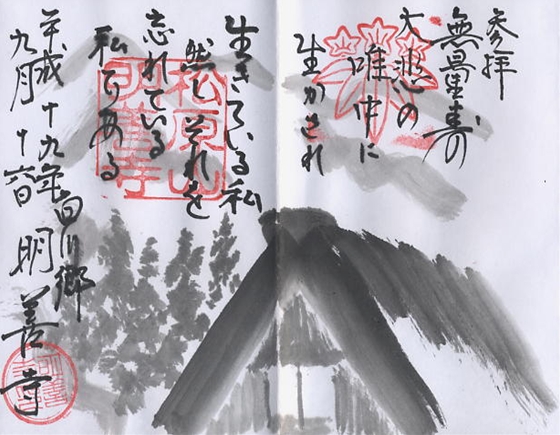 参拝
無量寿
大悲の
唯中に
生かされ
生きている私
然し それを
忘れている
私である
平成十九年
九月十六日
白川郷
明善寺
松原山
明善寺